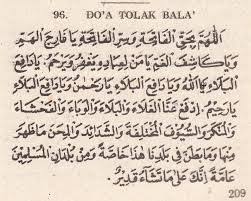 96. DO'A TOLAK BALA'
اَللّٰهُمَّ بِحَقِّ الْفَاتِحَةِ وَسِرِّ الْفَاتِحَةِ يَا فَارِجَ الْهَمِّ
وَيَا كَاشِفَ الْغَمِّ يَا مَنْ لِعِبَادِهِ يَغْفِرُ وَيَرْحَمُ، يَا دَافِعَ
الْبَلَاءِ يَا اَللّٰهُ وَيَا دَافِعَ الْبَلَاءِ يَا رَحْمٰنُ وَيَا دَافِعَ الْبَلَاءِ
يَا رَحِيْمُ اِدْفَعْ عَنَّا الْغَلَاءَ وَالْبَلَاءَ وَالْوَبَاءَ وَالْفَحْشَاءَ
وَالْمُنْكَرَ وَالسُّيُوْفَ الْمُخْتَلِفَةَ وَالشَّدَائِدَ وَالْمِحَنَ مَا ظَهَرَ
مِنْهَا وَمَا بَطَنَ فِى بَلَدِنَا هٰذَا خَاصَّةً وَمِنْ بُلْدَانِ الْمُسْلِمِيْنَ
عَامَّةً اِنَّكَ عَلٰى مَا تَشَاءُ قَدِيْرٌ
209